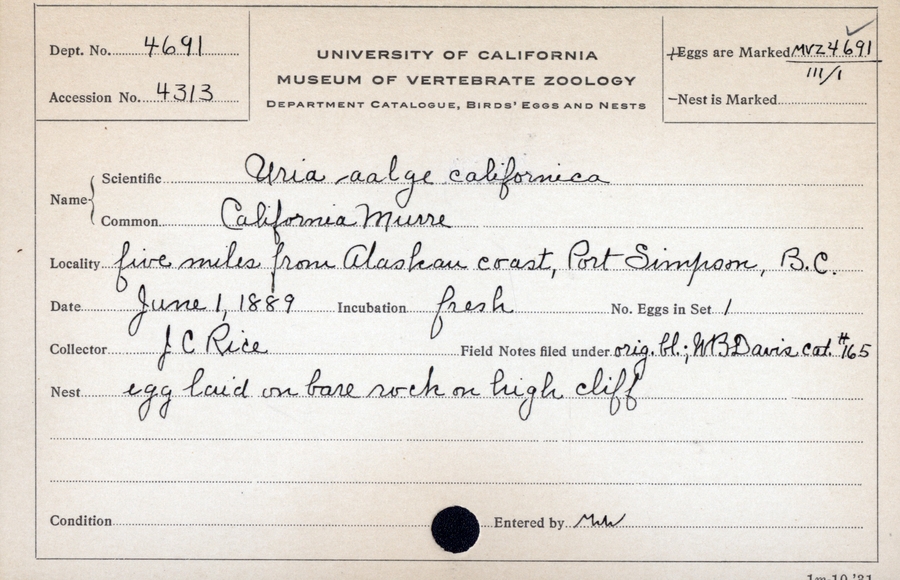 Dept. No. 4691
Accession No. 4313
UNIVERSITY OF CALIFORNIA
MUSEUM OF VERTEBRATE ZOOLOGY
DEPARTMENT CATALOGUE, BIRDS' EGGS AND NESTS
+Eggs are Marked MVZ4691
111/1
—Nest is Marked
Name
Scientific Uria aalge californica
Common California Murre
Locality five miles from Alaskan coast, Port Simpson, B.C.
Date June 1, 1889 Incubation fresh No. Eggs in Set 1
Collector J C Rice Field Notes filed under orig. bl.; WB Davis cat. #165
Nest egg laid on bare rock on high cliff
Condition Entered by
1m-10-'31